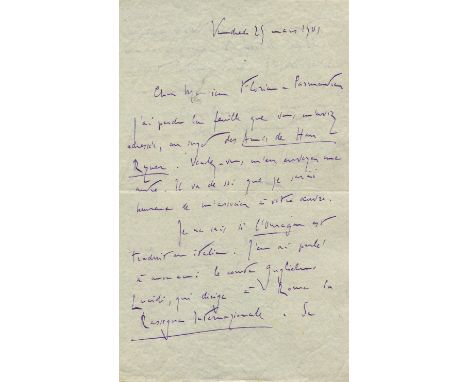 Vendredi 25 mars 1921
Cher Monsieur Florian-Parmentier
J'ai perdu la feuille que vous m'aviez
adressée, au sujet des Amis de Han
Ryner. Voulez-vous m'en envoyer une
autre. Il va de soi que je serais
heureux de m'associer à votre œuvre.
Je ne sais si l'Ouragan est
traduit en italien. J'en ai parlé
à mon ami le comte Guglielmo
Lucidi, qui dirige à Rome la
Rassegna Internazionale. Sa